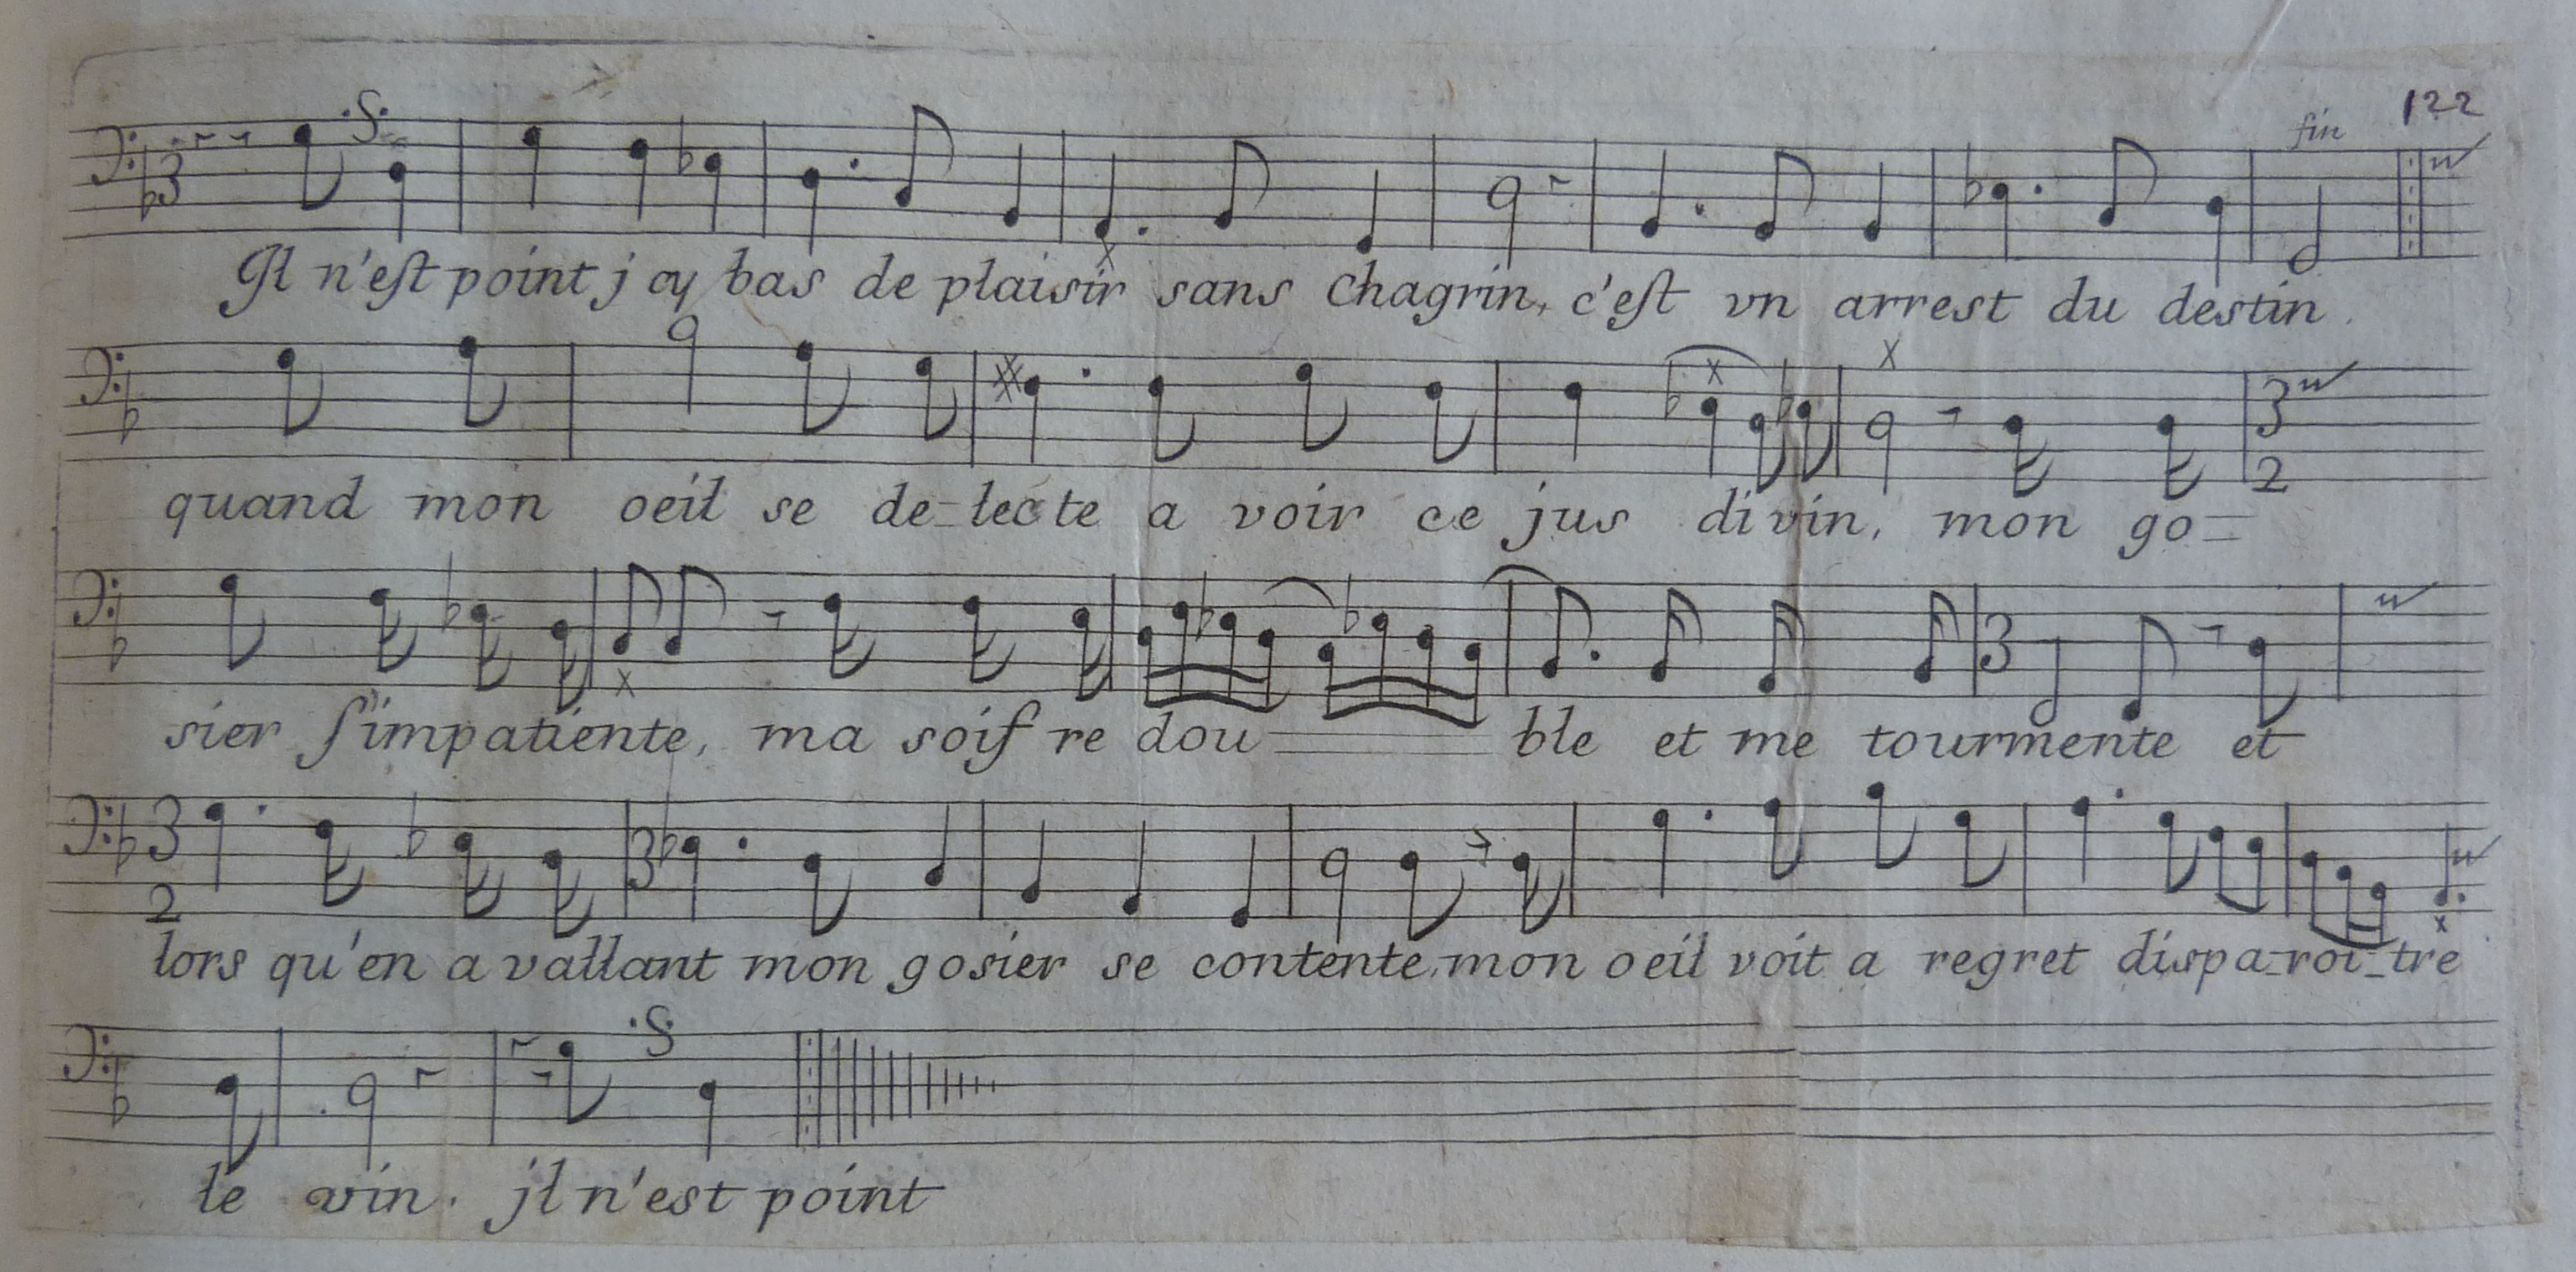 122
fin
Il n'est point j cy bas de plaisir sans chagrin, c'est vn arrest du destin.
quand mon oeil se de-lecte a voir ce jus divin, mon go=
sier s'impatiente, ma soif re dou ble et me tourmente et
lors qu'en avallant mon gosier se contente, mon oeil voit a regret dispa-roi-tre
le vin. jl n'est point